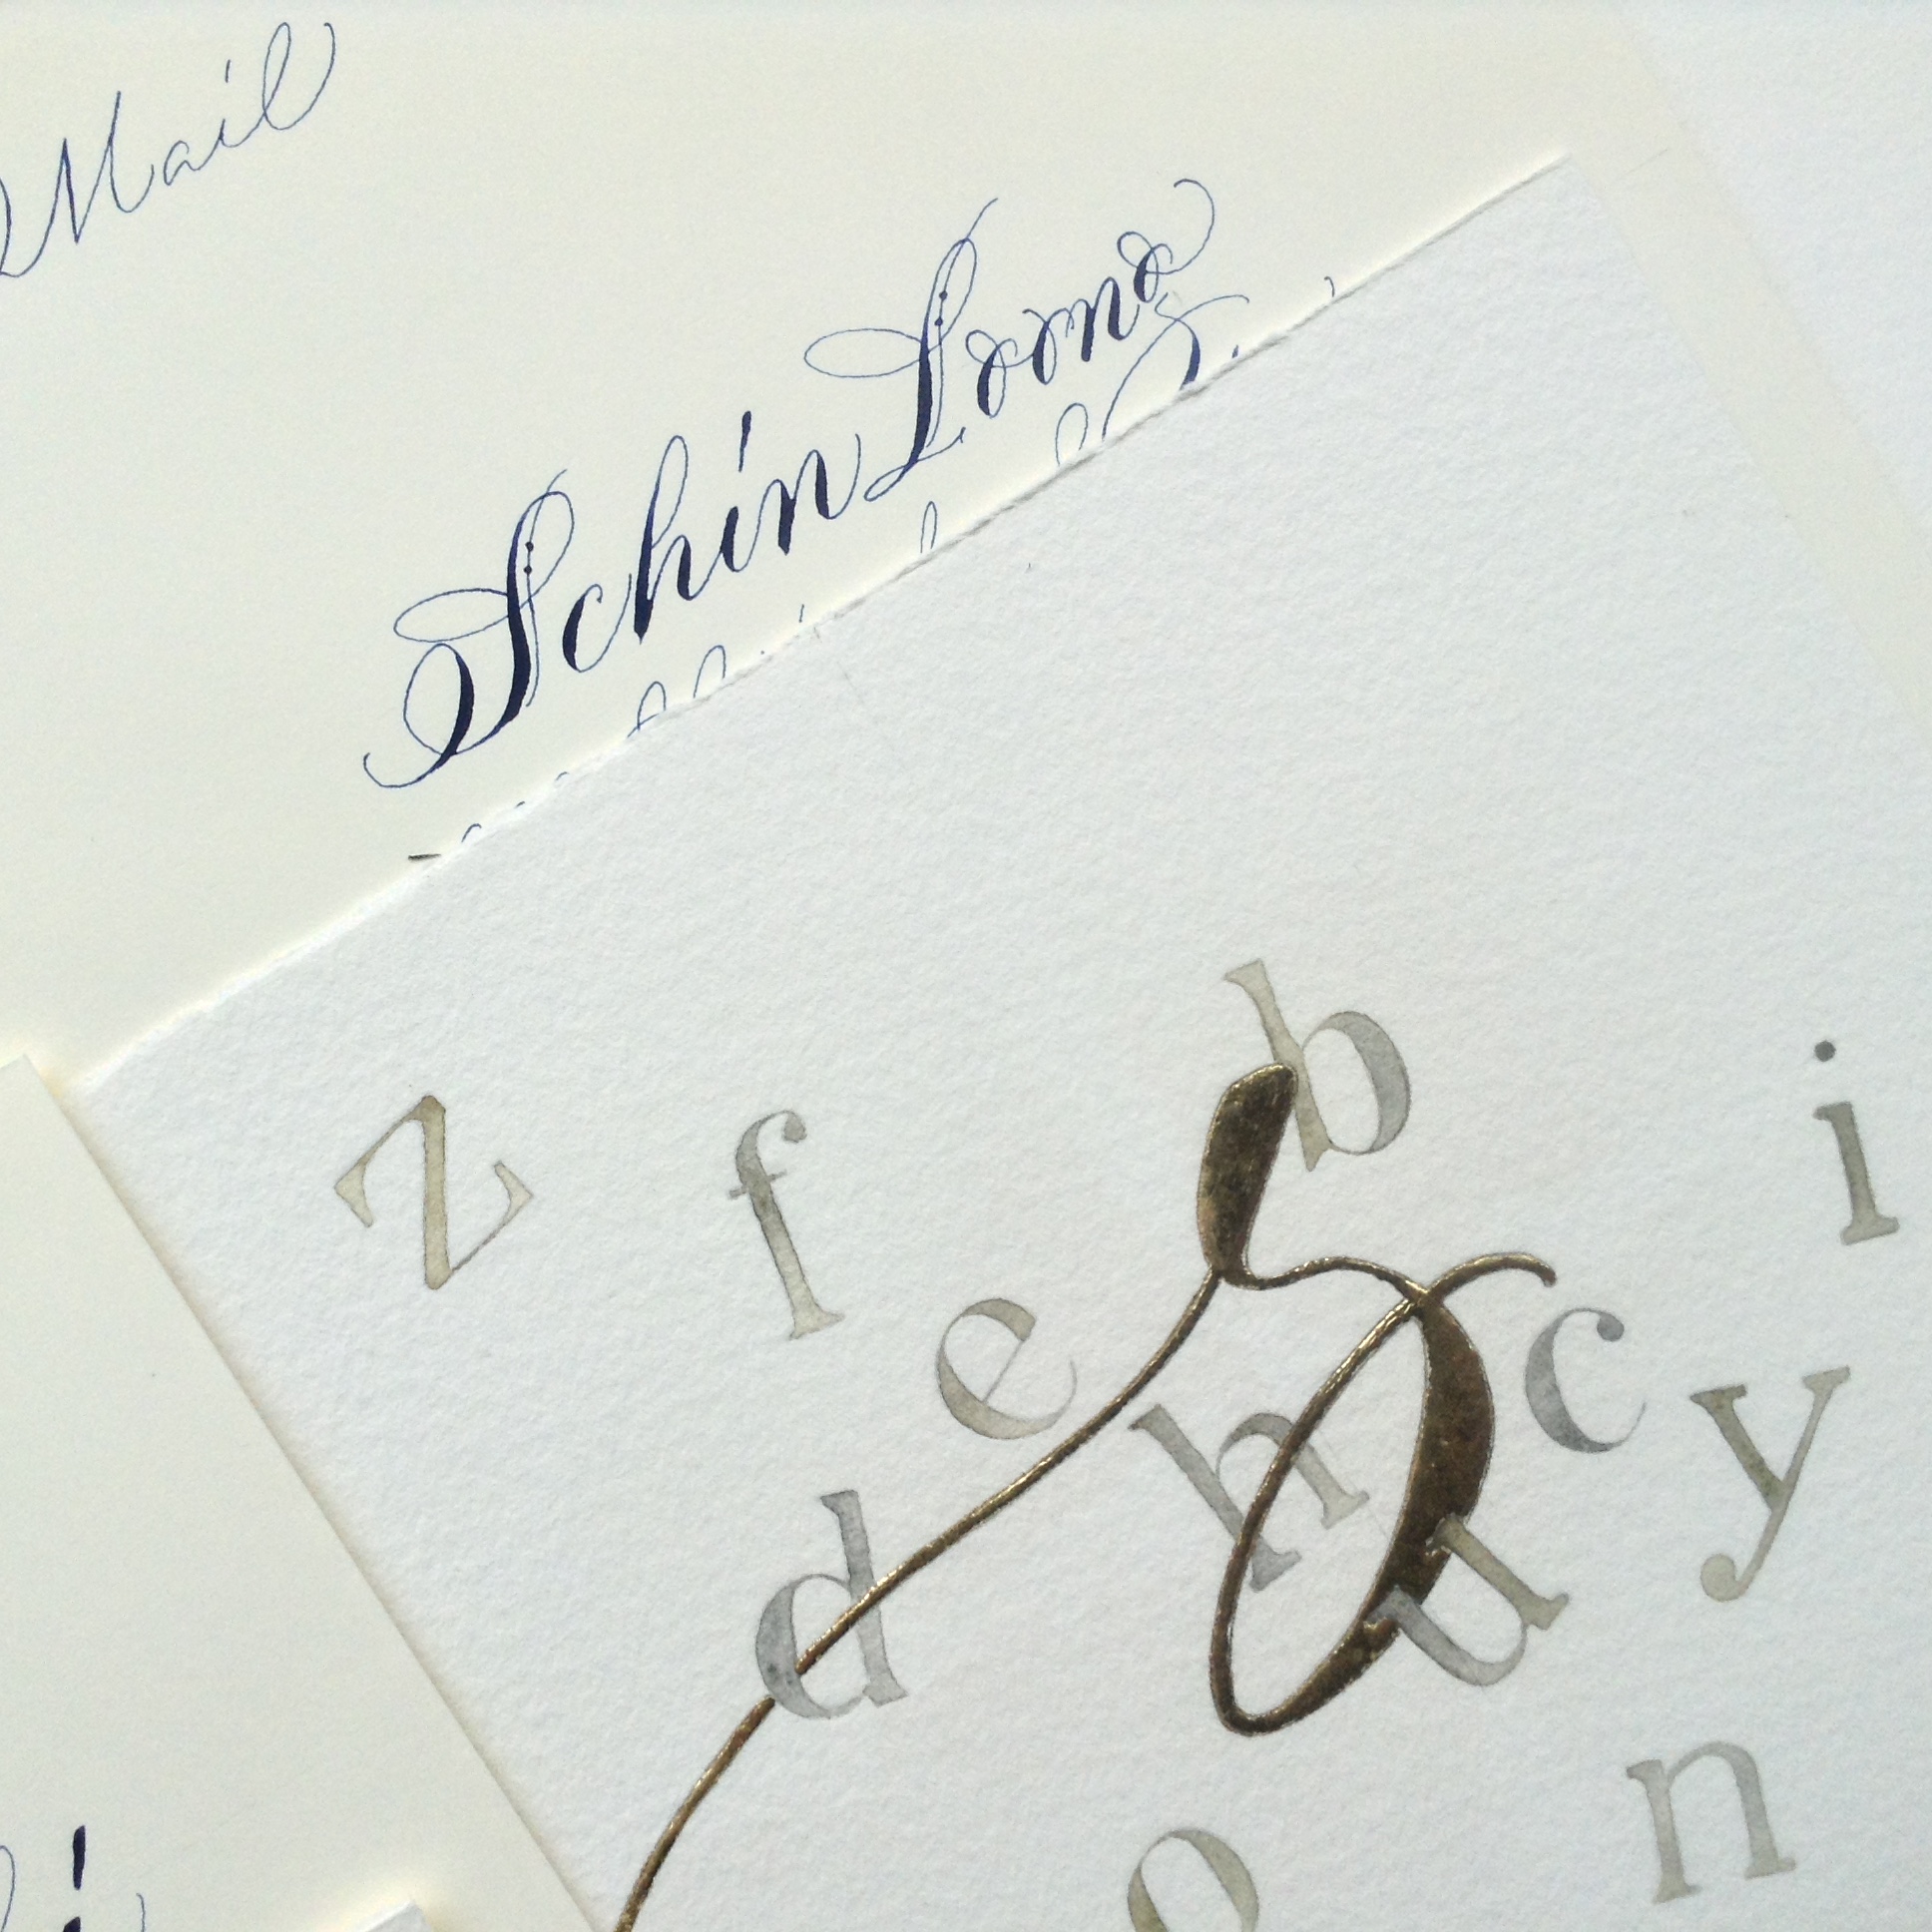 Mail
Schin Loong
z
f
b
i
e
h
c
y
d
u
n
o